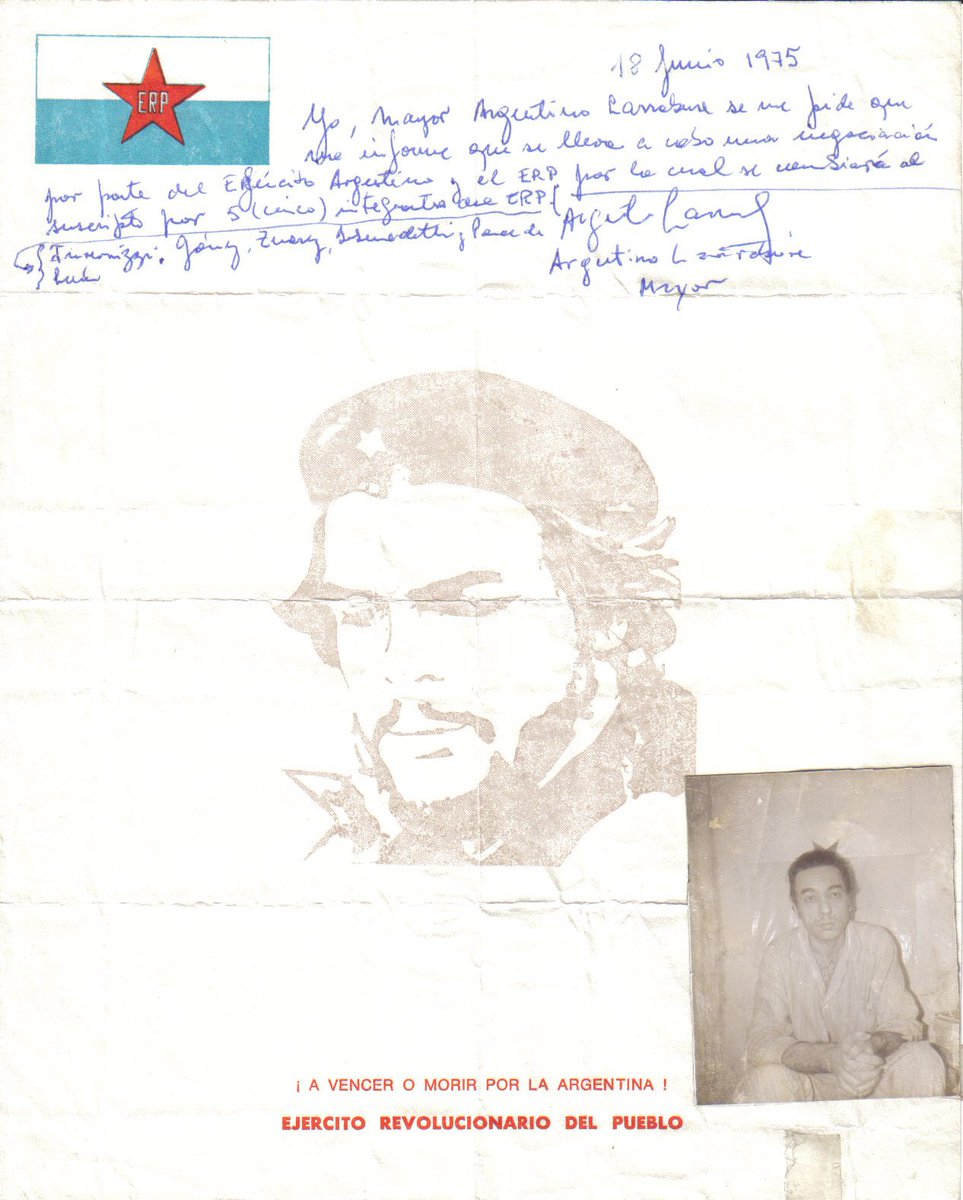 ERP
18 Junio 1975
Yo, Mayor Argentino Larrabure se me pide que
informe que se lleva a cabo una negociación
por parte del Ejército Argentino y el ERP por la cual se cambiará al
suscripto por 5 (cinco) integrantes ERP
Invernizzi, Gómez,
Argentino Larrabure
Mayor
¡ A VENCER O MORIR POR LA ARGENTINA !
EJERCITO REVOLUCIONARIO DEL PUEBLO